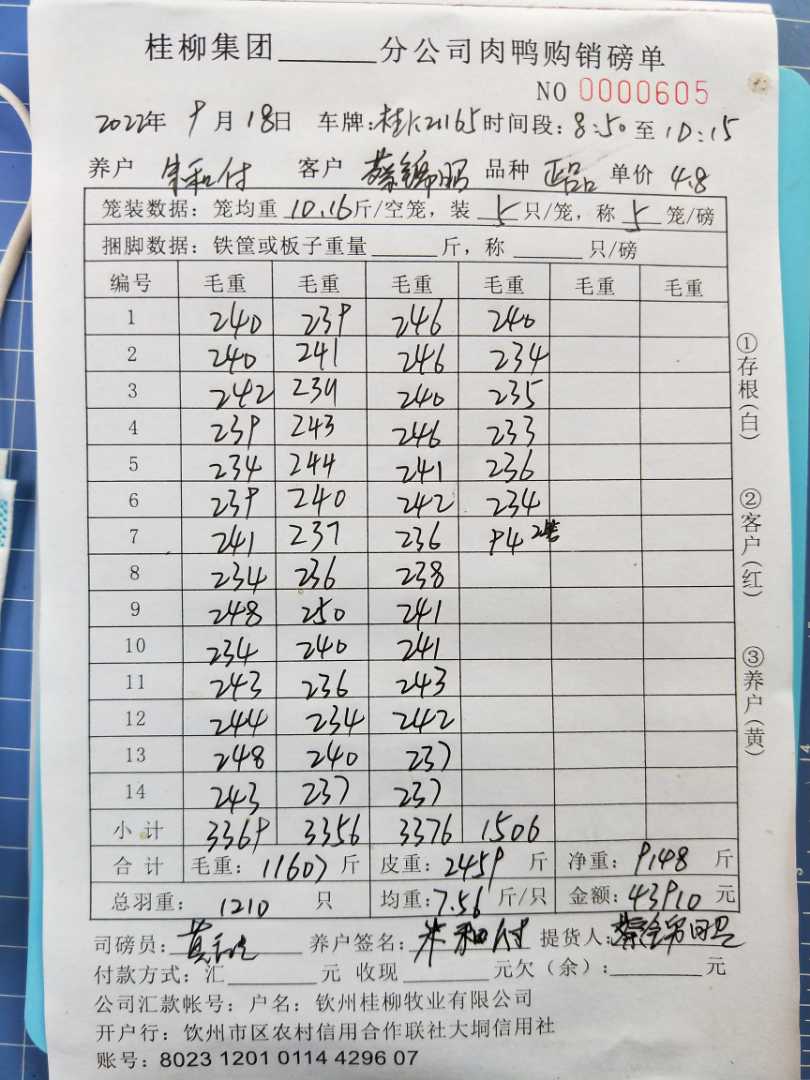 桂柳集团______分公司肉鸭购销磅单
NO 0000605
2022年 9月18日 车牌: 时间段:8:50至10:15
养户 朱和付 客户 品种 正品 单价 4.8
笼装数据:笼均重 10.16斤/空笼,装 5 只/笼,称 5 笼/磅
捆脚数据:铁筐或板子重量______斤,称______只/磅
编号 毛重 毛重 毛重 毛重 毛重 毛重
1 240 239 246 240
2 240 241 246 234
3 242 239 240 235
4 239 243 246 233
5 234 244 241 236
6 239 240 242 234
7 241 237 236 94 2笼
8 234 236 238
9 248 250 241
10 234 240 241
11 243 236 243
12 244 234 242
13 248 240 237
14 243 237 237
小计 3369 3356 3376 1506
合计 毛重:11607斤 皮重:2459斤 净重:9148斤
总羽重: 1210 只 均重:7.56斤/只 金额:43910元
司磅员: 养户签名:朱和付 提货人:
付款方式:汇______元 收现______元欠(余):______元
公司汇款帐号:户名:钦州桂柳牧业有限公司
开户行:钦州市区农村信用合作联社大垌信用社
账号:8023 1201 0114 4296 07
①存根(白)
②客户(红)
③养户(黄)